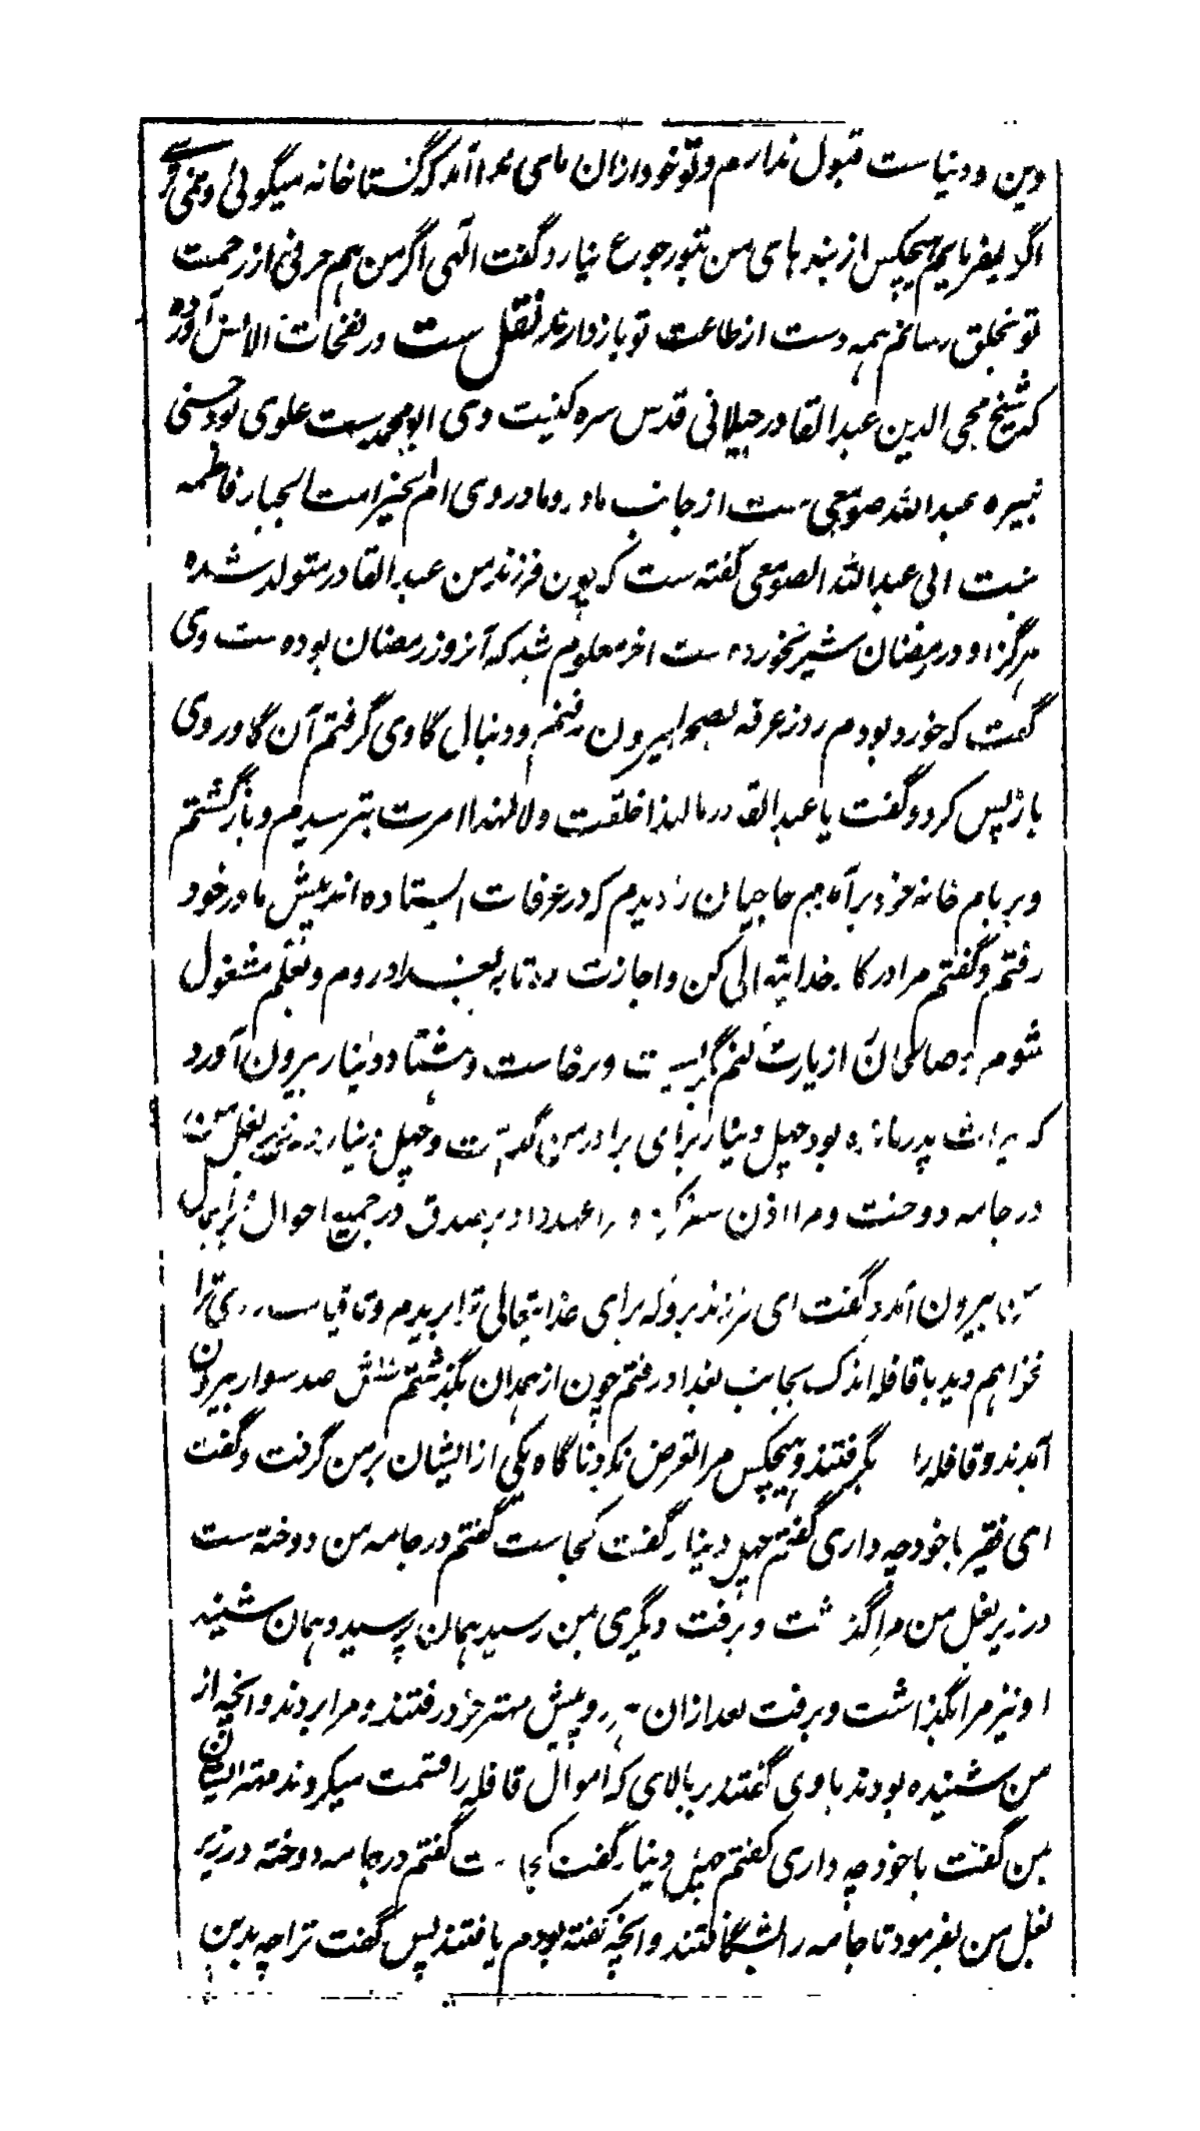 دین و دنیاست قبول ندارم و تو خود ازان ما می گستاخانه میگوئی و نمی
اگر بفرمایم هیچکس از بنده های من بتو رجوع نیارد گفت الهی اگر من هم حرفی از رحمت
تو بخلق رسانم همه دست از طاعت تو بازدارند نقل ست در نفحات الانس آورده
که شیخ محی الدین عبدالقادر جیلانی قدس سره کنیت وی ابو محمد ست علوی بود حسنی
نبیره عبدالله صومعی ست از جانب مادر و مادر وی ام الخیر امت الجبار فاطمه
بنت ابی عبدالله الصومعی گفته ست که چون فرزند من عبدالقادر متولد شده
هرگز او در رمضان شیر نخورده ست اخر معلوم شد که آنروز رمضان بوده ست وی
گفت که خورد بودم روز عرفه بصحرا بیرون رفتم و دنبال گاوی گرفتم آن گاو روی
باز پس کرد و گفت یا عبدالقادر ما لهذا خلقت ولا لهذا امرت بترسیدم و بازگشتم
و بر بام خانه خود برآمدم حاجیان را دیدم که در عرفات ایستاده اند پیش مادر خود
رفتم و گفتم مرا در کار خدایتعالی کن و اجازت ده تا به بغداد روم و بعلم مشغول
شوم و صالحان را زیارت کنم گریست و برخاست و هشتاد دینار بیرون آورد
که میراث پدر مانده بود چهل دینار برای برادر من گذاشت و چهل دینار در زیر بغل من
در جامه دوخت و مرا اذن سفر کرد و مرا عهد داد بر صدق در جمیع احوال
بیرون آمد و گفت ای فرزند برو که برای خدایتعالی از تو ببریدم و تا قیامت روی ترا
نخواهم دید با قافله اندک بجانب بغداد رفتم چون از همدان بگذشتم شش صد سوار بیرون
آمدند و قافله را بگرفتند و هیچکس مرا تعرض نکرد ناگاه یکی از ایشان بر من گرفت و گفت
ای فقیر با خود چه داری گفتم چهل دینار گفت کجاست گفتم در جامه من دوخته ست
در زیر بغل من مرا گذاشت و برفت دیگری بمن رسید همان پرسید و همان شنید
او نیز مرا بگذاشت و برفت بعد ازان پیش مهتر خود رفتند و مرا بردند و آنچه از
من شنیده بودند با وی گفتند بر بالای که اموال قافله را قسمت میکردند مهتر ایشان
بمن گفت با خود چه داری گفتم چهل دینار گفت کجاست گفتم در جامه دوخته در زیر
بغل من بفرمود تا جامه را بشگافتند و آنچه گفته بودم یافتند پس گفت ترا چه برین